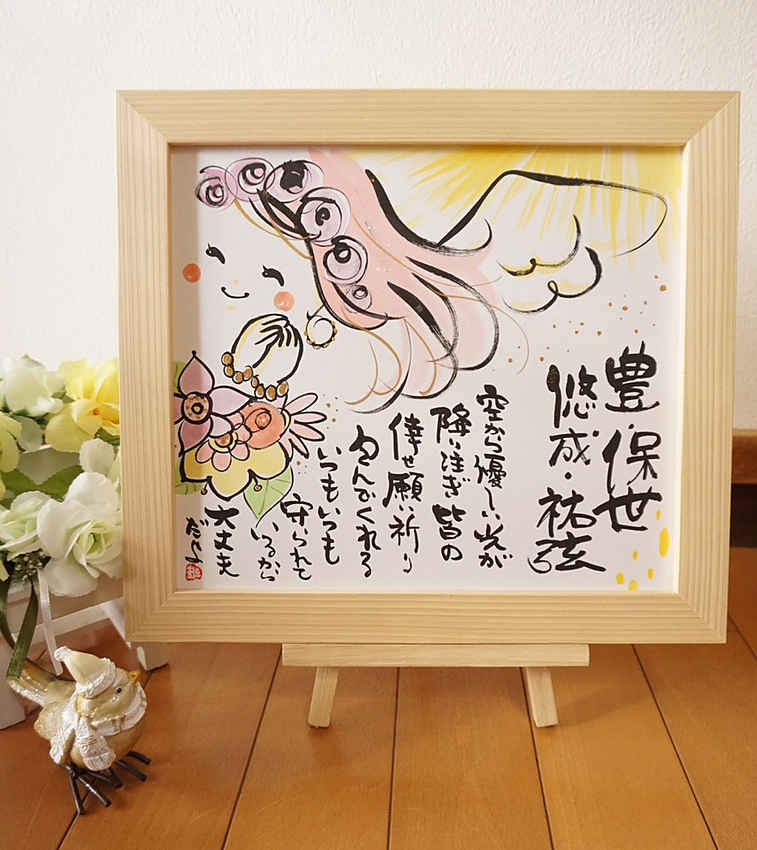 豊・保世
悠成・祐弦
空から優しい光が
降り注ぎ皆の
倖せ願い祈り
包んでくれる
いつもいつも
守られて
いるから
大丈夫
だよ